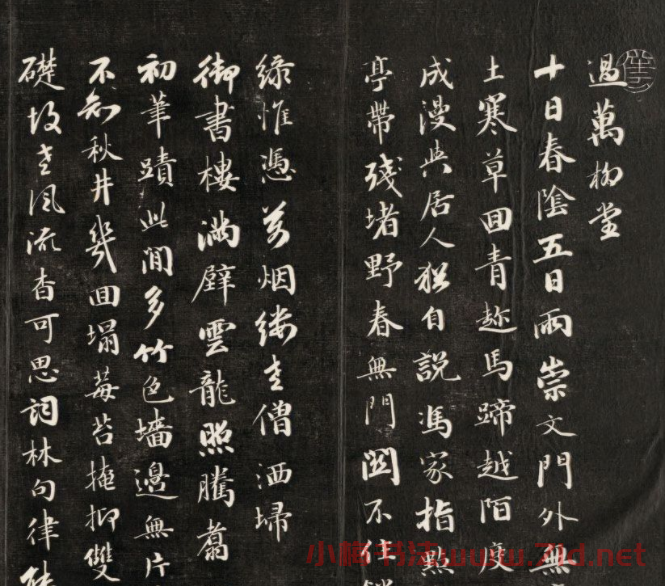 過萬柳堂
十日春陰五日雨崇文門外無
土寒草回青趂馬蹄越陌度
成漫與居人猶自說馮家指點
亭帶殘堵野春無門關不住
綠惟憑萬烟縷老僧洒埽
御書樓滿壁雲龍照騰翥
初筆蹟此間多竹色墻邊無片
不知秋井幾回塌莓苔掩抑雙
礎故老風流杳可思詞林句律
小楷书法www.71d.net